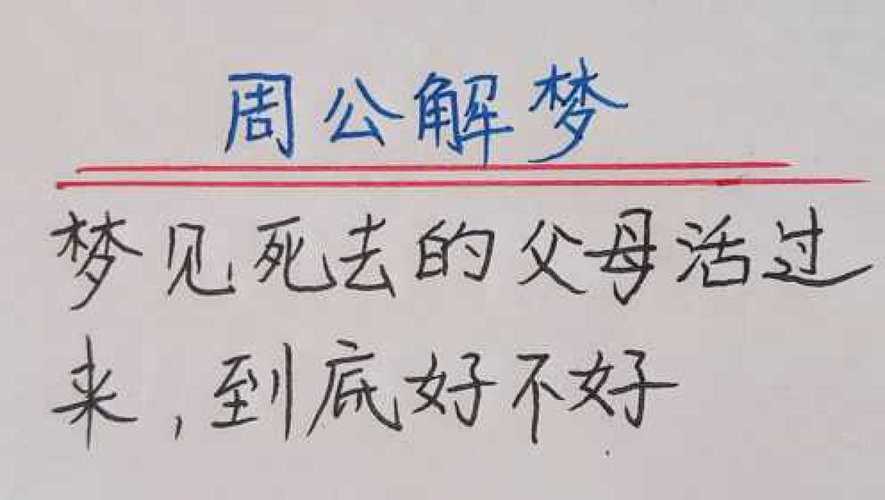 周公解梦
梦见死去的父母活过
来,到底好不好